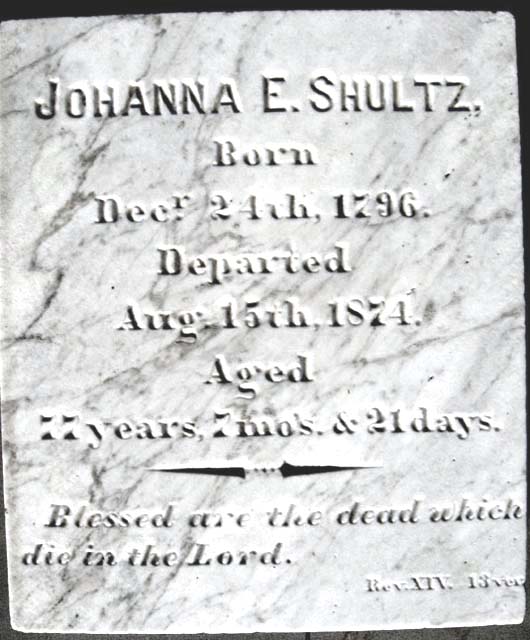 JOHANNA E. SHULTZ,
Born
Decr. 24th, 1796.
Departed
Aug. 15th, 1874.
Aged
77 years, 7 mo's. & 21 days.
Blessed are the dead which
die in the Lord.
Rev. XIV. 13 ver